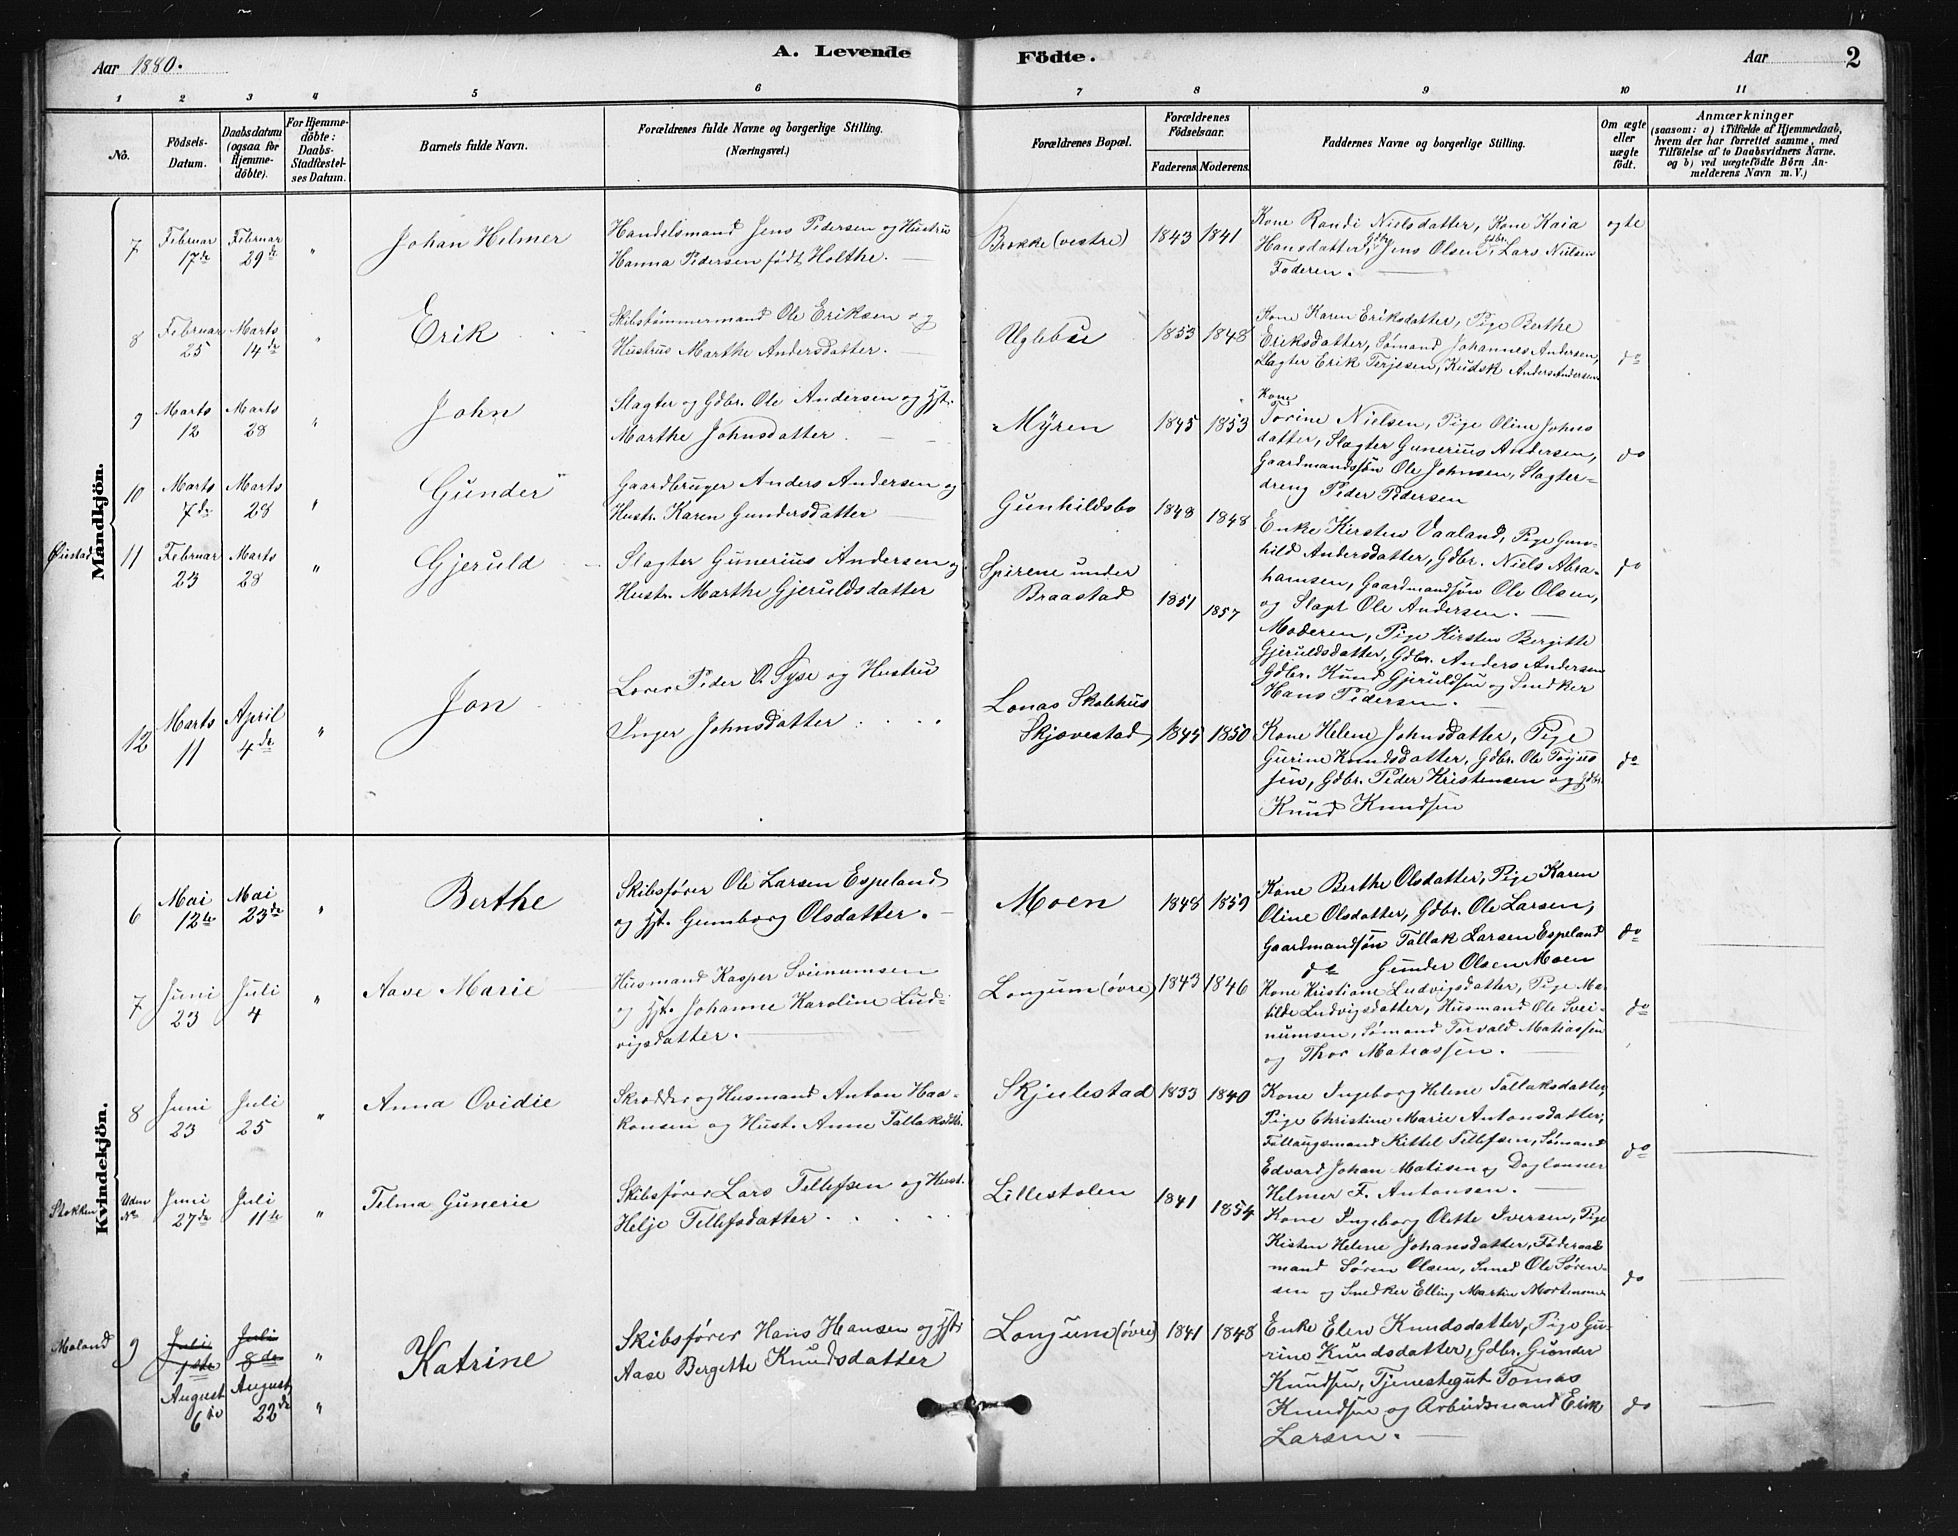 Aar 1880.
A. Levende
Födte.
Aar
2
1 2 3 4 5 6 7 8 9 10 11
No.
Födsels-Datum.
Daabsdatum (ogsaa for Hjemme-döbte).
For Hjemme-döbte: Daabs-Stadfæstel-ses Datum.
Barnets fulde Navn.
Forældrenes fulde Navne og borgerlige Stilling. (Næringsvei.)
Forældrenes Bopæl.
Forældrenes Födselsaar.
Faderens. Moderens.
Faddernes Navne og borgerlige Stilling.
Om ægte eller uægte födt.
Anmærkninger
(saasom: a) i Tilfælde af Hjemmedaab, hvem der har forrettet samme, med Tilföielse af to Daabsvidners Navne. og b) ved uægtefödte Börn An-melderens Navn m. V.)
Mandkjön.
7 Februar 17de Februar 29de " Johan Hilmer
Handelsmand Jens Pedersen og Hustru
Hanna Pedersen født Holthe.
Brække (vestre) 1843 1841
Kone Randi Nielsdatter, Kone Kaia
Hansdatter, Gdbr. Jens Olsen, Gdbr. Lars Nielsen
Faderen.
ægte
8 Februar 25 Marts 14de " Erik
Skibstømmermand Ole Eriksen og
Hustru Marthe Andersdatter.
Uglebu 1853 1848
Kone Karen Eriksdatter, Pige Berthe
Eriksdatter, Sømand Johannes Andersen,
Slagter Erik Terjesen, Kudsk Anders Andersen
do
9 Marts 12 Marts 28 " John
Slagter og Gdbr. Ole Andersen og Hst.
Marthe Johnsdatter.
Myren 1845 1853
Kone
Torine Nielsen, Pige Oline Johns
datter, Slagter Gunerius Andersen,
Gaardmandssøn Ole Johnsen, Slagter-
dreng Peder Pedersen
do
10 Marts 7de Marts 28 " Gunder
Gaardbruger Anders Andersen og
Hustr. Karen Gundersdatter
Gunhildsbo 1848 1848
Enke Kirsten Vaaland, Pige Gun-
hild Andersdatter, Gdbr. Niels Abra-
hamsen, Gaardmandsøn Ole Olsen,
og Slagt Ole Andersen.
do
Øiestad 11 Februar 23 Marts 28 " Gjeruld
Slagter Gunerius Andersen og
Hustr. Marthe Gjeruldsdatter
Spirene under
Braastad 1851 1857
Moderen, Pige Kirsten Bergitte
Gjeruldsdatter, Gdbr. Anders Andersen
Gdbr. Knud Gjeruldsen og Snedker
Hans Pedersen.
12 Marts 11 April 4de " Jon
Lærer Peder O. Syse og Hustru
Inger Johnsdatter
Lonas Skolehus
Skjævestad 1845 1850
Kone Helene Johnsdatter, Pige
Gurine Knudsdatter, Gdbr. Ole Tojus
sen, Gdbr. Peder Kristensen og Gdbr.
Knud Knudsen
do
Kvindekjön.
6 Mai 12te Mai 23de " Berthe
Skibsfører Ole Larsen Espeland
og Hst. Gunnborg Olsdatter.
Moen 1848 1859
Kone Berthe Olsdatter, Pige Karen
Oline Olsdatter, Gdbr. Ole Larsen,
Gaardmandsøn Tallak Larsen Espeland
do Gunder Olsen Moen
do
7 Juni 23 Juli 4 " Aase Marie
Husmand Kasper Sveinumsen
og Hst. Johanne Karoline Lud-
vigsdatter.
Longum (øvre) 1843 1846
Kone Kristiane Ludvigsdatter, Pige Ma-
tilde Ludvigsdatter, Husmand Ole Svei-
numsen, Sømand Torvald Matiassen
og Thor Matiassen.
do
8 Juni 23 Juli 25 " Anna Ovidie
Skrædder og Husmand Anton Haa-
konsen og Hust. Anne Tallaksdtr.
Skjulestad 1833 1840
Kone Ingeborg Helene Tallaksdatter,
Pige Christine Marie Antonsdatter,
Føllaugsmand Kittel Tellefsen, Sømand
Edvard Johan Matisen og Daglønner
Helmer F. Antonsen.
do
Stokken Uden No Juni 27de Juli 11te " Telma Gunerie
Skibsfører Lars Tellefsen og Hust.
Helje Tellefsdatter
Lillestølen 1841 1854
Kone Ingeborg Olette Iversen, Pige
Kisten Helene Johansdatter, Føderaad
mand Søren Olsen, Smed Ole Søren-
sen og Snedker Elling Martin Mortensen
do
Moland 9 Juli 1ste Juli 8de "
August 6te August 22de " Katrine
Skibsfører Hans Hansen og Hst.
Aase Bergette Knudsdatter
Longum (øvre) 1841 1848
Enke Elen Knudsdatter, Pige Gu-
rine Knudsdatter, Gdbr. Gunder
Knudsen, Tjenestegut Tomas
Knudsen og Arbeidsmand Erik
Larsen.
do